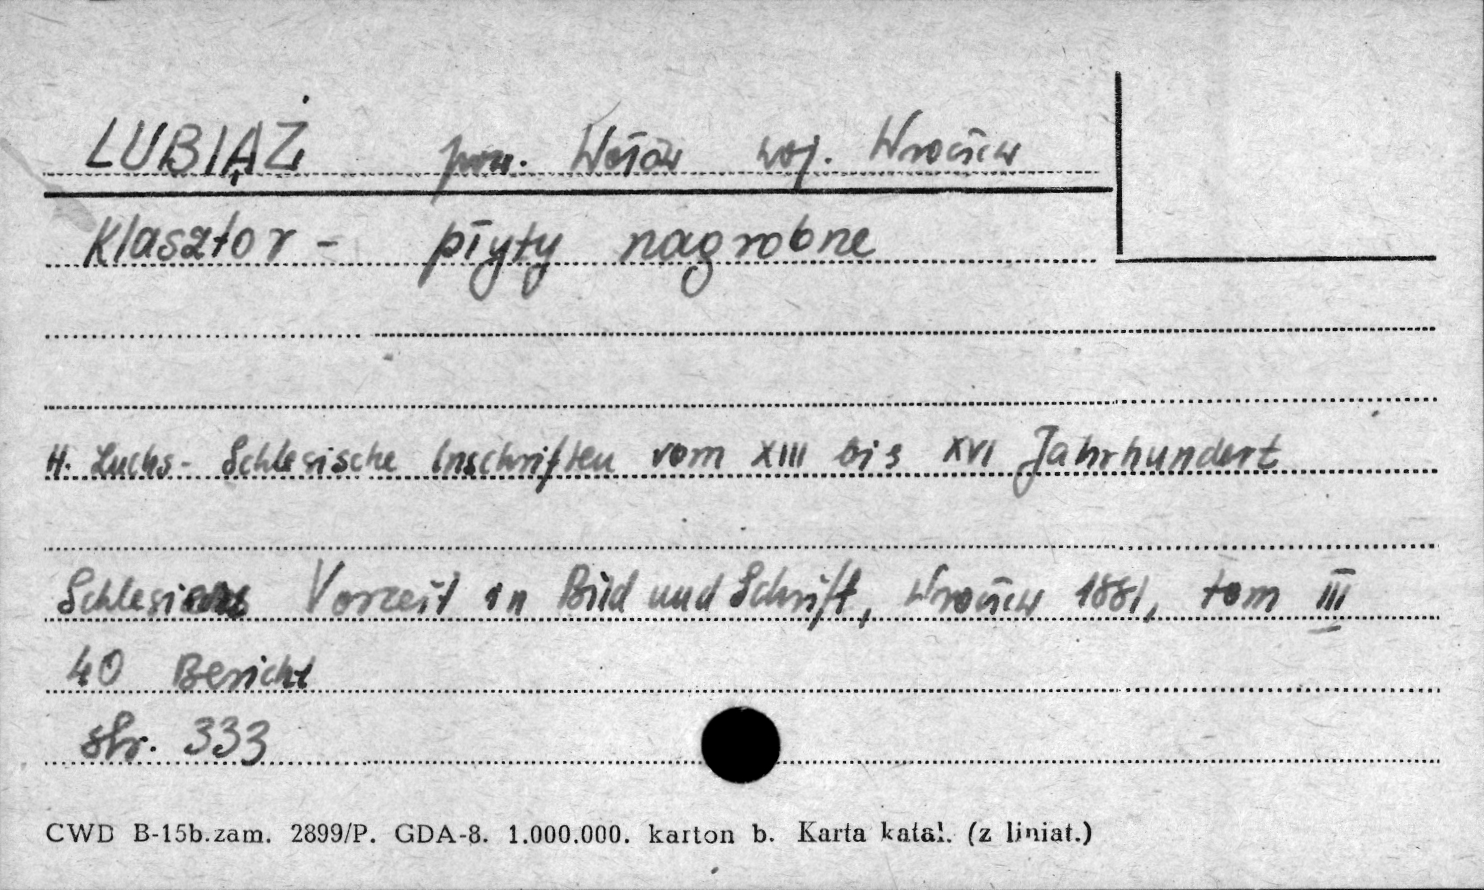 LUBIĄŻ pow. Wołów woj. Wrocław
Klasztor - płyty nagrobne
H. Luchs - Schlesische Inschriften vom XIII bis XVI Jahrhundert
Schlesiens Vorzeit in Bild und Schrift, Wrocław 1881, tom III
40 Bericht
str. 333
CWD B-15b.zam. 2899/P. GDA-8. 1.000.000. karton b. Karta katal. (z liniat.)